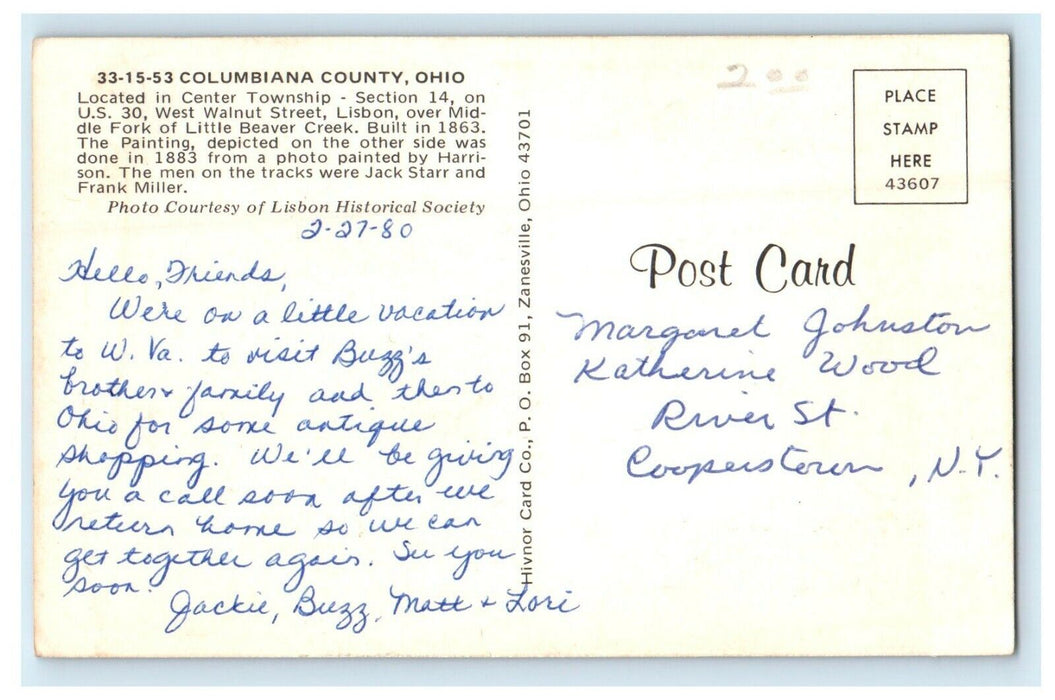 33-15-53 COLUMBIANA COUNTY, OHIO
Located in Center Township - Section 14, on
U.S. 30, West Walnut Street, Lisbon, over Mid-
dle Fork of Little Beaver Creek. Built in 1863.
The Painting, depicted on the other side was
done in 1883 from a photo painted by Harri-
son. The men on the tracks were Jack Starr and
Frank Miller.
Photo Courtesy of Lisbon Historical Society
2-27-80
Hello, Friends,
We're on a little vacation
to W. Va. to visit Buzz's
brother & family and then to
Ohio for some antique
shopping. We'll be giving
you a call soon after we
return home so we can
get together again. See you
soon.
Jackie, Buzz, Matt & Lori
Hivnor Card Co., P. O. Box 91, Zanesville, Ohio 43701
2 00
PLACE
STAMP
HERE
43607
Post Card
Margaret Johnston
Katherine Wood
River St.
Cooperstown, N.Y.